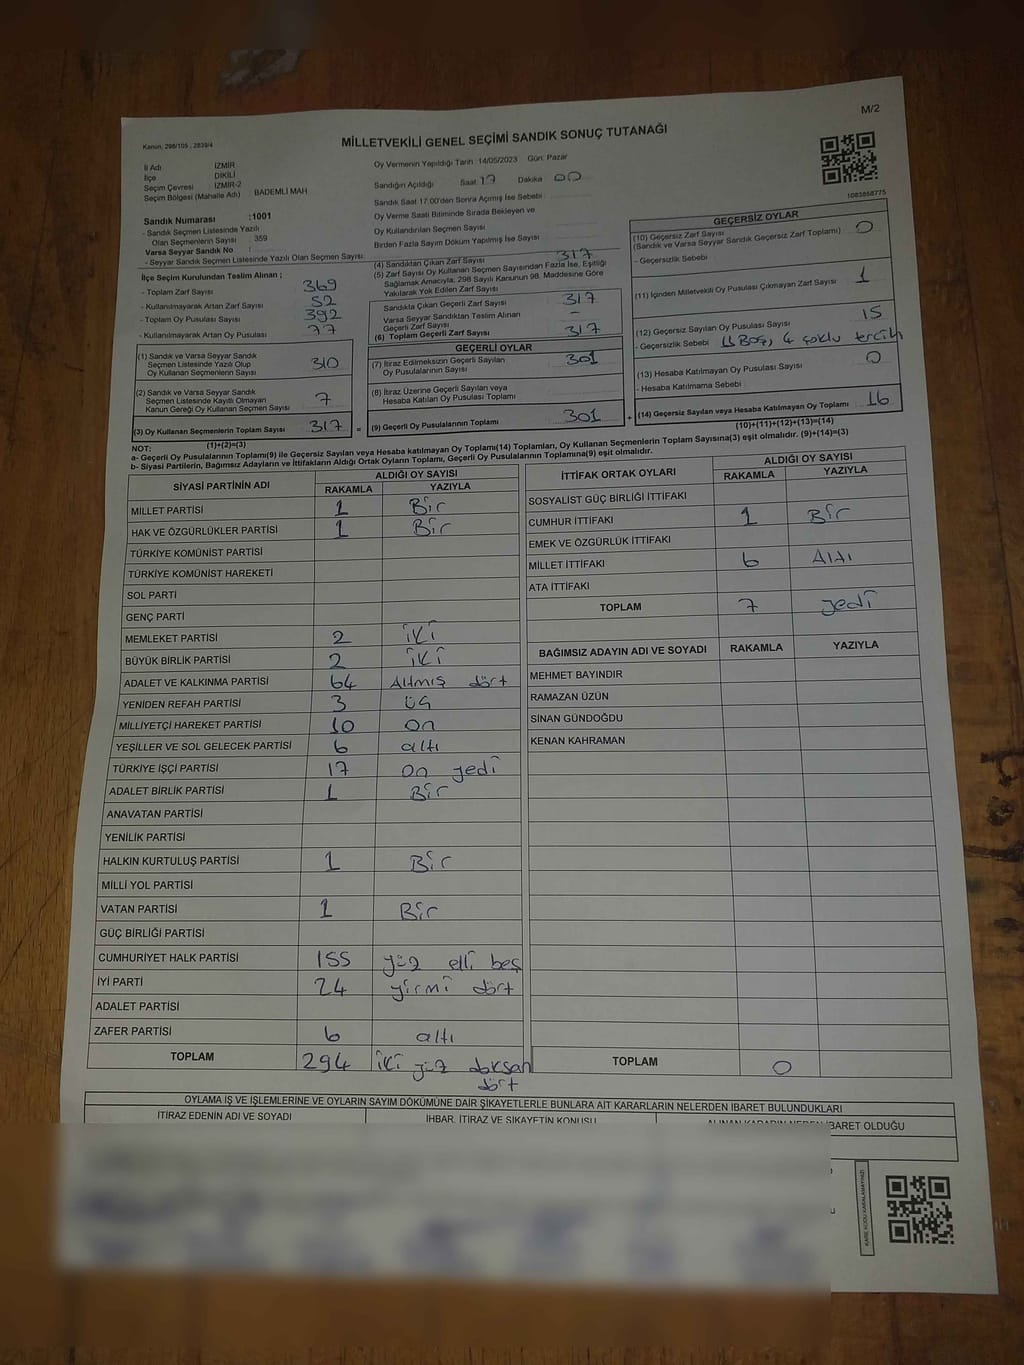 M/2
Kanun, 298/105 , 2839/4
MİLLETVEKİLİ GENEL SEÇİMİ SANDIK SONUÇ TUTANAĞI
İl Adı İZMİR
İlçe DİKİLİ
Seçim Çevresi İZMİR-2
Seçim Bölgesi (Mahalle Adı) BADEMLİ MAH
Sandık Numarası :1001
- Sandık Seçmen Listesinde Yazılı
Olan Seçmenlerin Sayısı 359
Varsa Seyyar Sandık No :
- Seyyar Sandık Seçmen Listesinde Yazılı Olan Seçmen Sayısı
İlçe Seçim Kurulundan Teslim Alınan ;
- Toplam Zarf Sayısı 369
- Kullanılmayarak Artan Zarf Sayısı 52
- Toplam Oy Pusulası Sayısı 392
- Kullanılmayarak Artan Oy Pusulası 77
(1) Sandık ve Varsa Seyyar Sandık
Seçmen Listesinde Yazılı Olup
Oy Kullanan Seçmenlerin Sayısı 310
(2) Sandık ve Varsa Seyyar Sandık
Seçmen Listesinde Kayıtlı Olmayan
Kanun Gereği Oy Kullanan Seçmen Sayısı 7
(3) Oy Kullanan Seçmenlerin Toplam Sayısı 317 =
(1)+(2)=(3)
Oy Vermenin Yapıldığı Tarih :14/05/2023 Gün: Pazar
Sandığın Açıldığı Saat 17 Dakika 00
Sandık Saat 17.00'den Sonra Açılmış İse Sebebi :
Oy Verme Saati Bitiminde Sırada Bekleyen ve
Oy Kullandırılan Seçmen Sayısı
Birden Fazla Sayım Döküm Yapılmış İse Sayısı
(4) Sandıktan Çıkan Zarf Sayısı 317
(5) Zarf Sayısı Oy Kullanan Seçmen Sayısından Fazla İse, Eşitliği
Sağlamak Amacıyla, 298 Sayılı Kanunun 98. Maddesine Göre
Yakılarak Yok Edilen Zarf Sayısı
Sandıkta Çıkan Geçerli Zarf Sayısı 317
Varsa Seyyar Sandıktan Teslim Alınan
Geçerli Zarf Sayısı -
(6) Toplam Geçerli Zarf Sayısı 317
GEÇERLİ OYLAR
(7) İtiraz Edilmeksizin Geçerli Sayılan
Oy Pusulalarının Sayısı 301
(8) İtiraz Üzerine Geçerli Sayılan veya
Hesaba Katılan Oy Pusulası Toplamı
(9) Geçerli Oy Pusulalarının Toplamı 301 +
1083858775
GEÇERSİZ OYLAR
(10) Geçersiz Zarf Sayısı
(Sandık ve Varsa Seyyar Sandık Geçersiz Zarf Toplamı) 0
- Geçersizlik Sebebi
(11) İçinden Milletvekili Oy Pusulası Çıkmayan Zarf Sayısı 1
(12) Geçersiz Sayılan Oy Pusulası Sayısı 15
- Geçersizlik Sebebi 11 Boş, 4 çoklu tercih
(13) Hesaba Katılmayan Oy Pusulası Sayısı 0
- Hesaba Katılmama Sebebi
(14) Geçersiz Sayılan veya Hesaba Katılmayan Oy Toplamı 16
(10)+(11)+(12)+(13)=(14)
NOT:
a- Geçerli Oy Pusulalarının Toplamı(9) ile Geçersiz Sayılan veya Hesaba katılmayan Oy Toplamı(14) Toplamları, Oy Kullanan Seçmenlerin Toplam Sayısına(3) eşit olmalıdır. (9)+(14)=(3)
b- Siyasi Partilerin, Bağımsız Adayların ve İttifakların Aldığı Ortak Oyların Toplamı, Geçerli Oy Pusulalarının Toplamına(9) eşit olmalıdır.
SİYASİ PARTİNİN ADI ALDIĞI OY SAYISI
RAKAMLA YAZIYLA
MİLLET PARTİSİ 1 Bir
HAK VE ÖZGÜRLÜKLER PARTİSİ 1 Bir
TÜRKİYE KOMÜNİST PARTİSİ
TÜRKİYE KOMÜNİST HAREKETİ
SOL PARTİ
GENÇ PARTİ
MEMLEKET PARTİSİ 2 iki
BÜYÜK BİRLİK PARTİSİ 2 iki
ADALET VE KALKINMA PARTİSİ 64 Altmış dört
YENİDEN REFAH PARTİSİ 3 üç
MİLLİYETÇİ HAREKET PARTİSİ 10 on
YEŞİLLER VE SOL GELECEK PARTİSİ 6 altı
TÜRKİYE İŞÇİ PARTİSİ 17 on yedi
ADALET BİRLİK PARTİSİ 1 Bir
ANAVATAN PARTİSİ
YENİLİK PARTİSİ
HALKIN KURTULUŞ PARTİSİ 1 Bir
MİLLİ YOL PARTİSİ
VATAN PARTİSİ 1 Bir
GÜÇ BİRLİĞİ PARTİSİ
CUMHURİYET HALK PARTİSİ 155 yüz elli beş
İYİ PARTİ 24 yirmi dört
ADALET PARTİSİ
ZAFER PARTİSİ 6 altı
TOPLAM 294 iki yüz doksan
dört
İTTİFAK ORTAK OYLARI ALDIĞI OY SAYISI
RAKAMLA YAZIYLA
SOSYALİST GÜÇ BİRLİĞİ İTTİFAKI
CUMHUR İTTİFAKI 1 Bir
EMEK VE ÖZGÜRLÜK İTTİFAKI
MİLLET İTTİFAKI 6 Altı
ATA İTTİFAKI
TOPLAM 7 yedi
BAĞIMSIZ ADAYIN ADI VE SOYADI RAKAMLA YAZIYLA
MEHMET BAYINDIR
RAMAZAN ÜZÜN
SİNAN GÜNDOĞDU
KENAN KAHRAMAN
TOPLAM 0
OYLAMA İŞ VE İŞLEMLERİNE VE OYLARIN SAYIM DÖKÜMÜNE DAİR ŞİKAYETLERLE BUNLARA AİT KARARLARIN NELERDEN İBARET BULUNDUKLARI
İTİRAZ EDENİN ADI VE SOYADI
İHBAR, İTİRAZ VE ŞİKAYETİN KONUSU
ALINAN KARARIN NEDEN İBARET OLDUĞU
KARE KODU KARALAMAYINIZ!